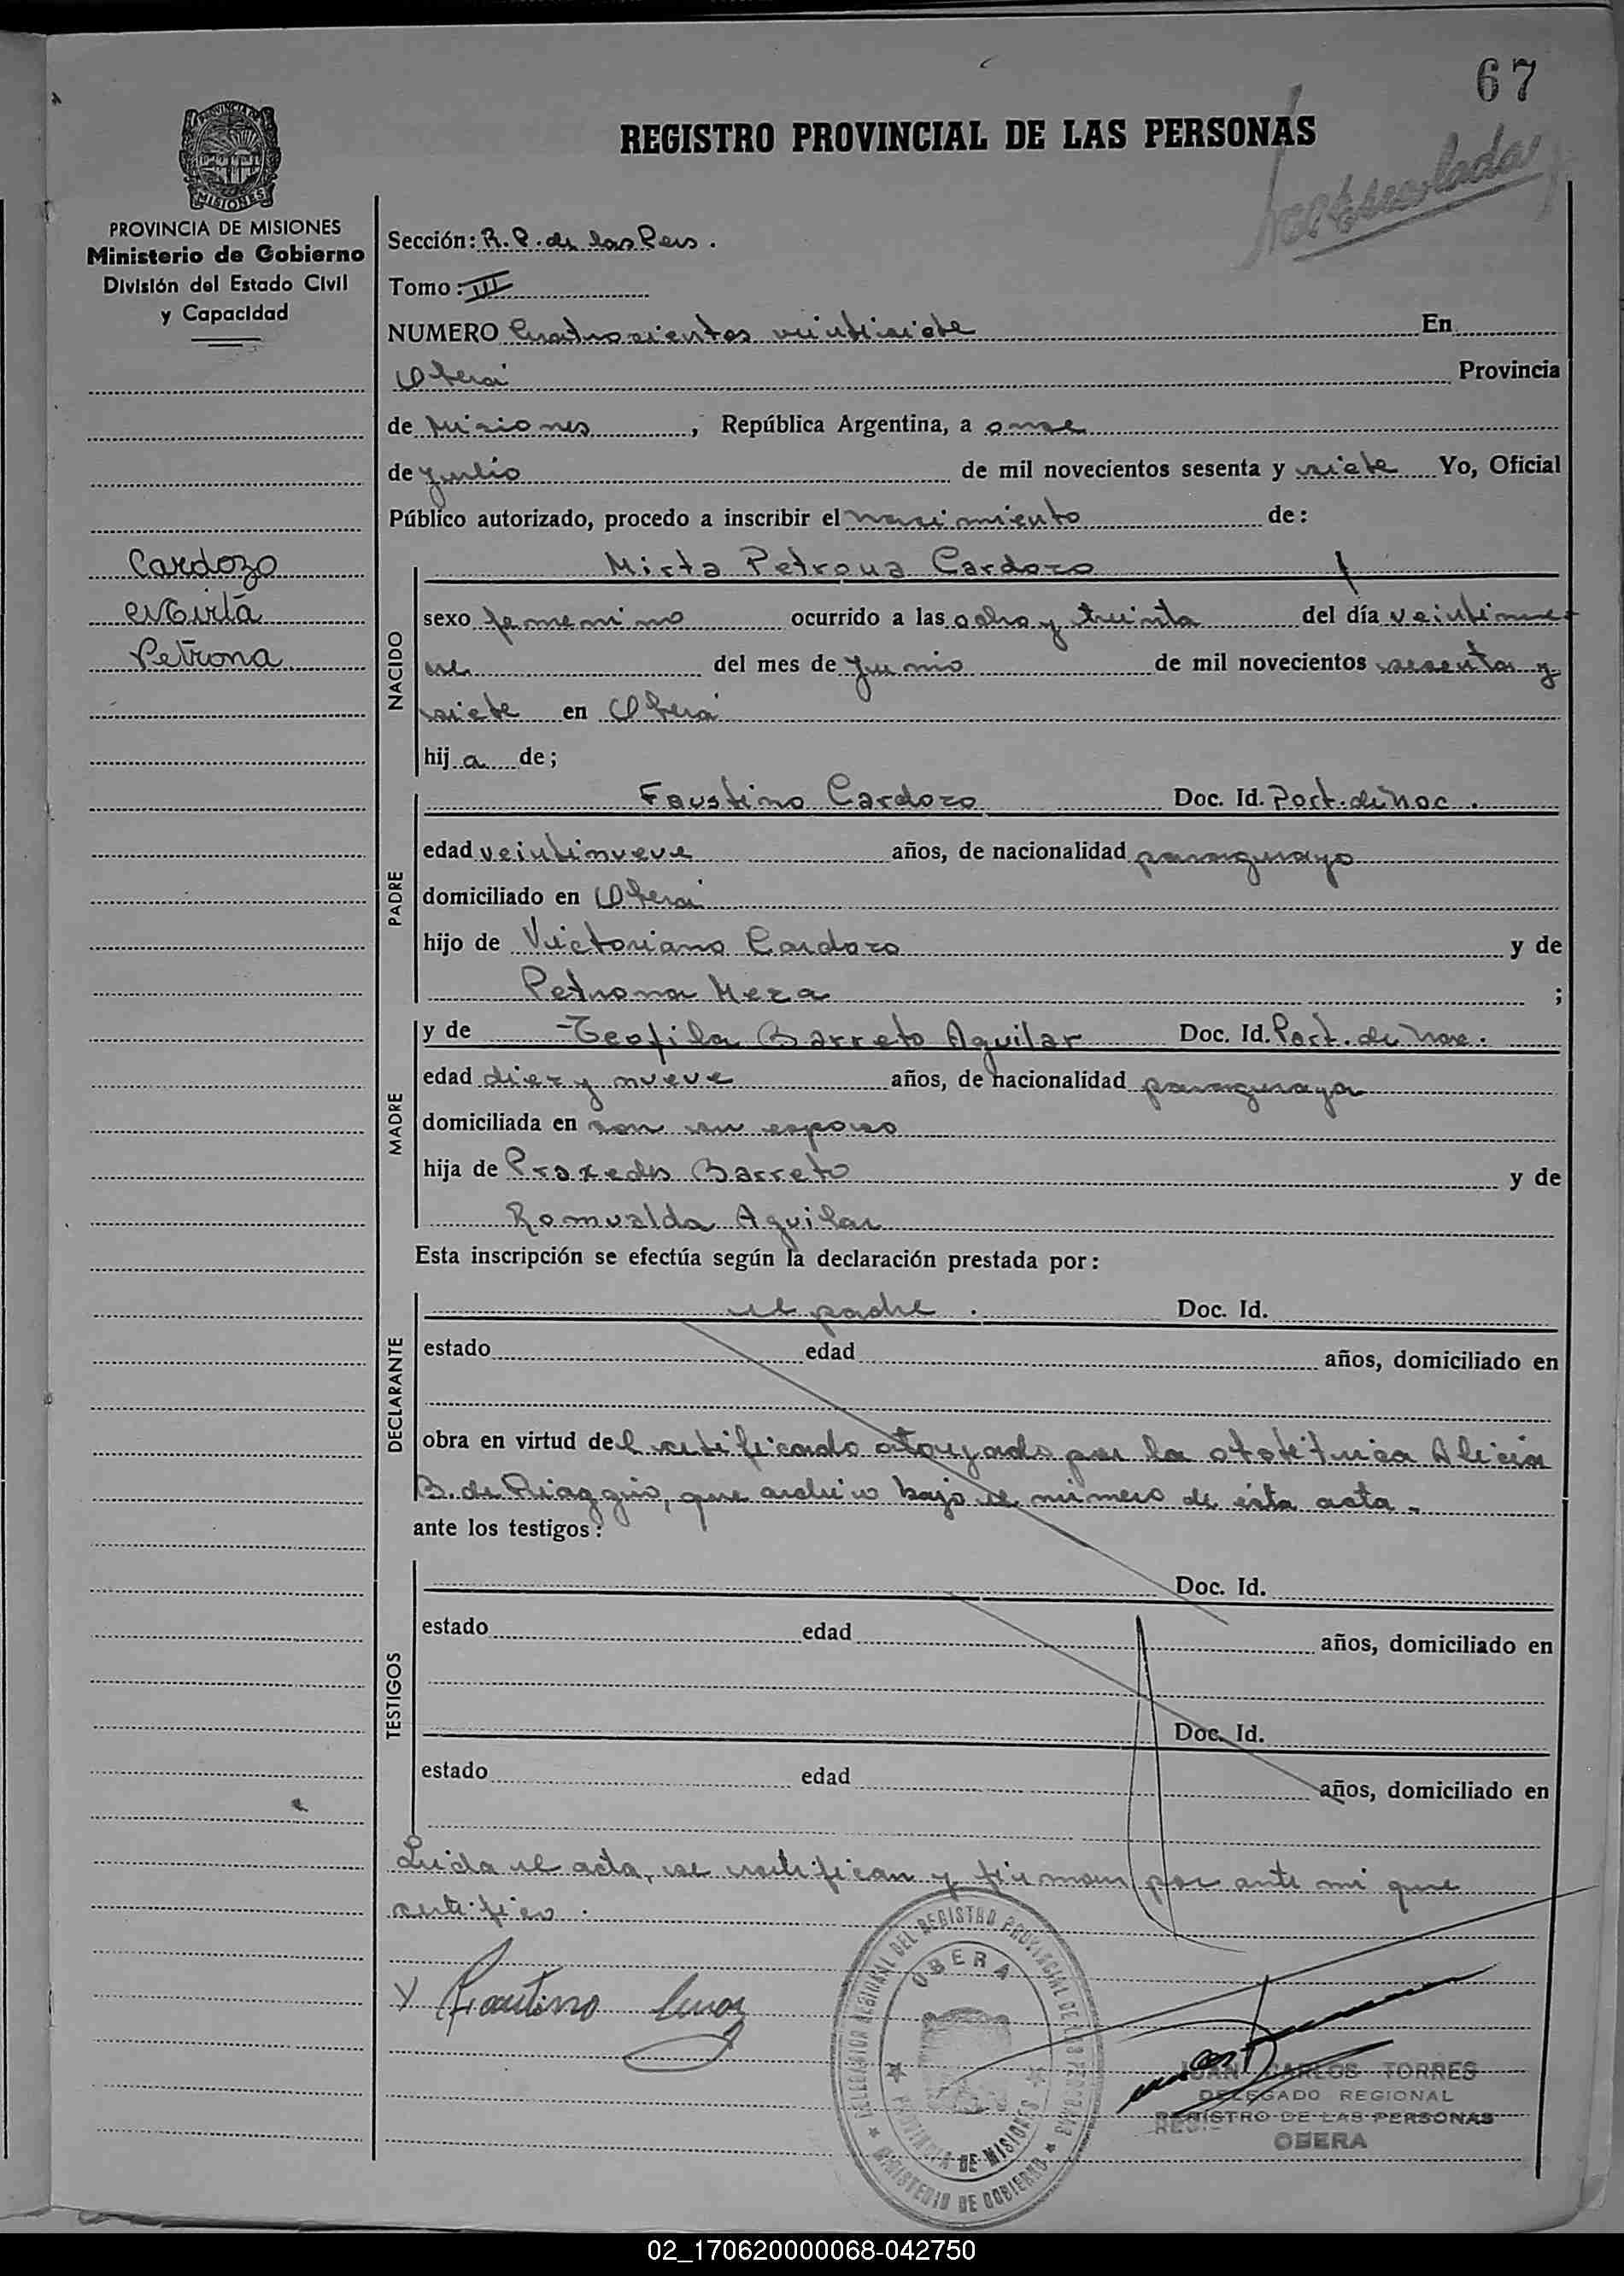 67
REGISTRO PROVINCIAL DE LAS PERSONAS
PROVINCIA DE MISIONES
Ministerio de Gobierno
División del Estado Civil
y Capacidad
Cardozo
Mirta
Petrona
Sección: R. P. de las Pers.
Tomo: III
NUMERO Cuatrocientos veintisiete En
Oberá Provincia
de Misiones, República Argentina, a once
de Julio de mil novecientos sesenta y siete Yo, Oficial
Público autorizado, procedo a inscribir el nacimiento de:
NACIDO
Mirta Petrona Cardozo
sexo femenino ocurrido a las ocho y treinta del día veintinue-
ve del mes de Junio de mil novecientos sesenta y
siete en Oberá
hija de;
PADRE
Faustino Cardozo Doc. Id. Part. de Nac.
edad veintinueve años, de nacionalidad paraguayo
domiciliado en Oberá
hijo de Victoriano Cardozo y de
Petrona Meza ;
MADRE
y de Teofila Barreto Aguilar Doc. Id. Part. de Nac.
edad diez y nueve años, de nacionalidad paraguaya
domiciliada en con su esposo
hija de Praxedes Barreto y de
Romualda Aguilar
Esta inscripción se efectúa según la declaración prestada por:
DECLARANTE
el padre. Doc. Id.
estado edad años, domiciliado en
obra en virtud del certificado otorgado por la obstétrica Alicia
B. de Riaggio, que archivo bajo el número de ésta acta.
ante los testigos:
TESTIGOS
Doc. Id.
estado edad años, domiciliado en
Doc. Id.
estado edad años, domiciliado en
Leida el acta, se ratifican y firman por ante mi que
certifico.
Faustino
DELEGACION REGIONAL DEL REGISTRO PROVINCIAL DE LAS PERSONAS
OBERA
PROVINCIA DE MISIONES
MINISTERIO DE GOBIERNO
JUAN CARLOS TORRES
DELEGADO REGIONAL
REGISTRO DE LAS PERSONAS
OBERA
02_170620000068-042750